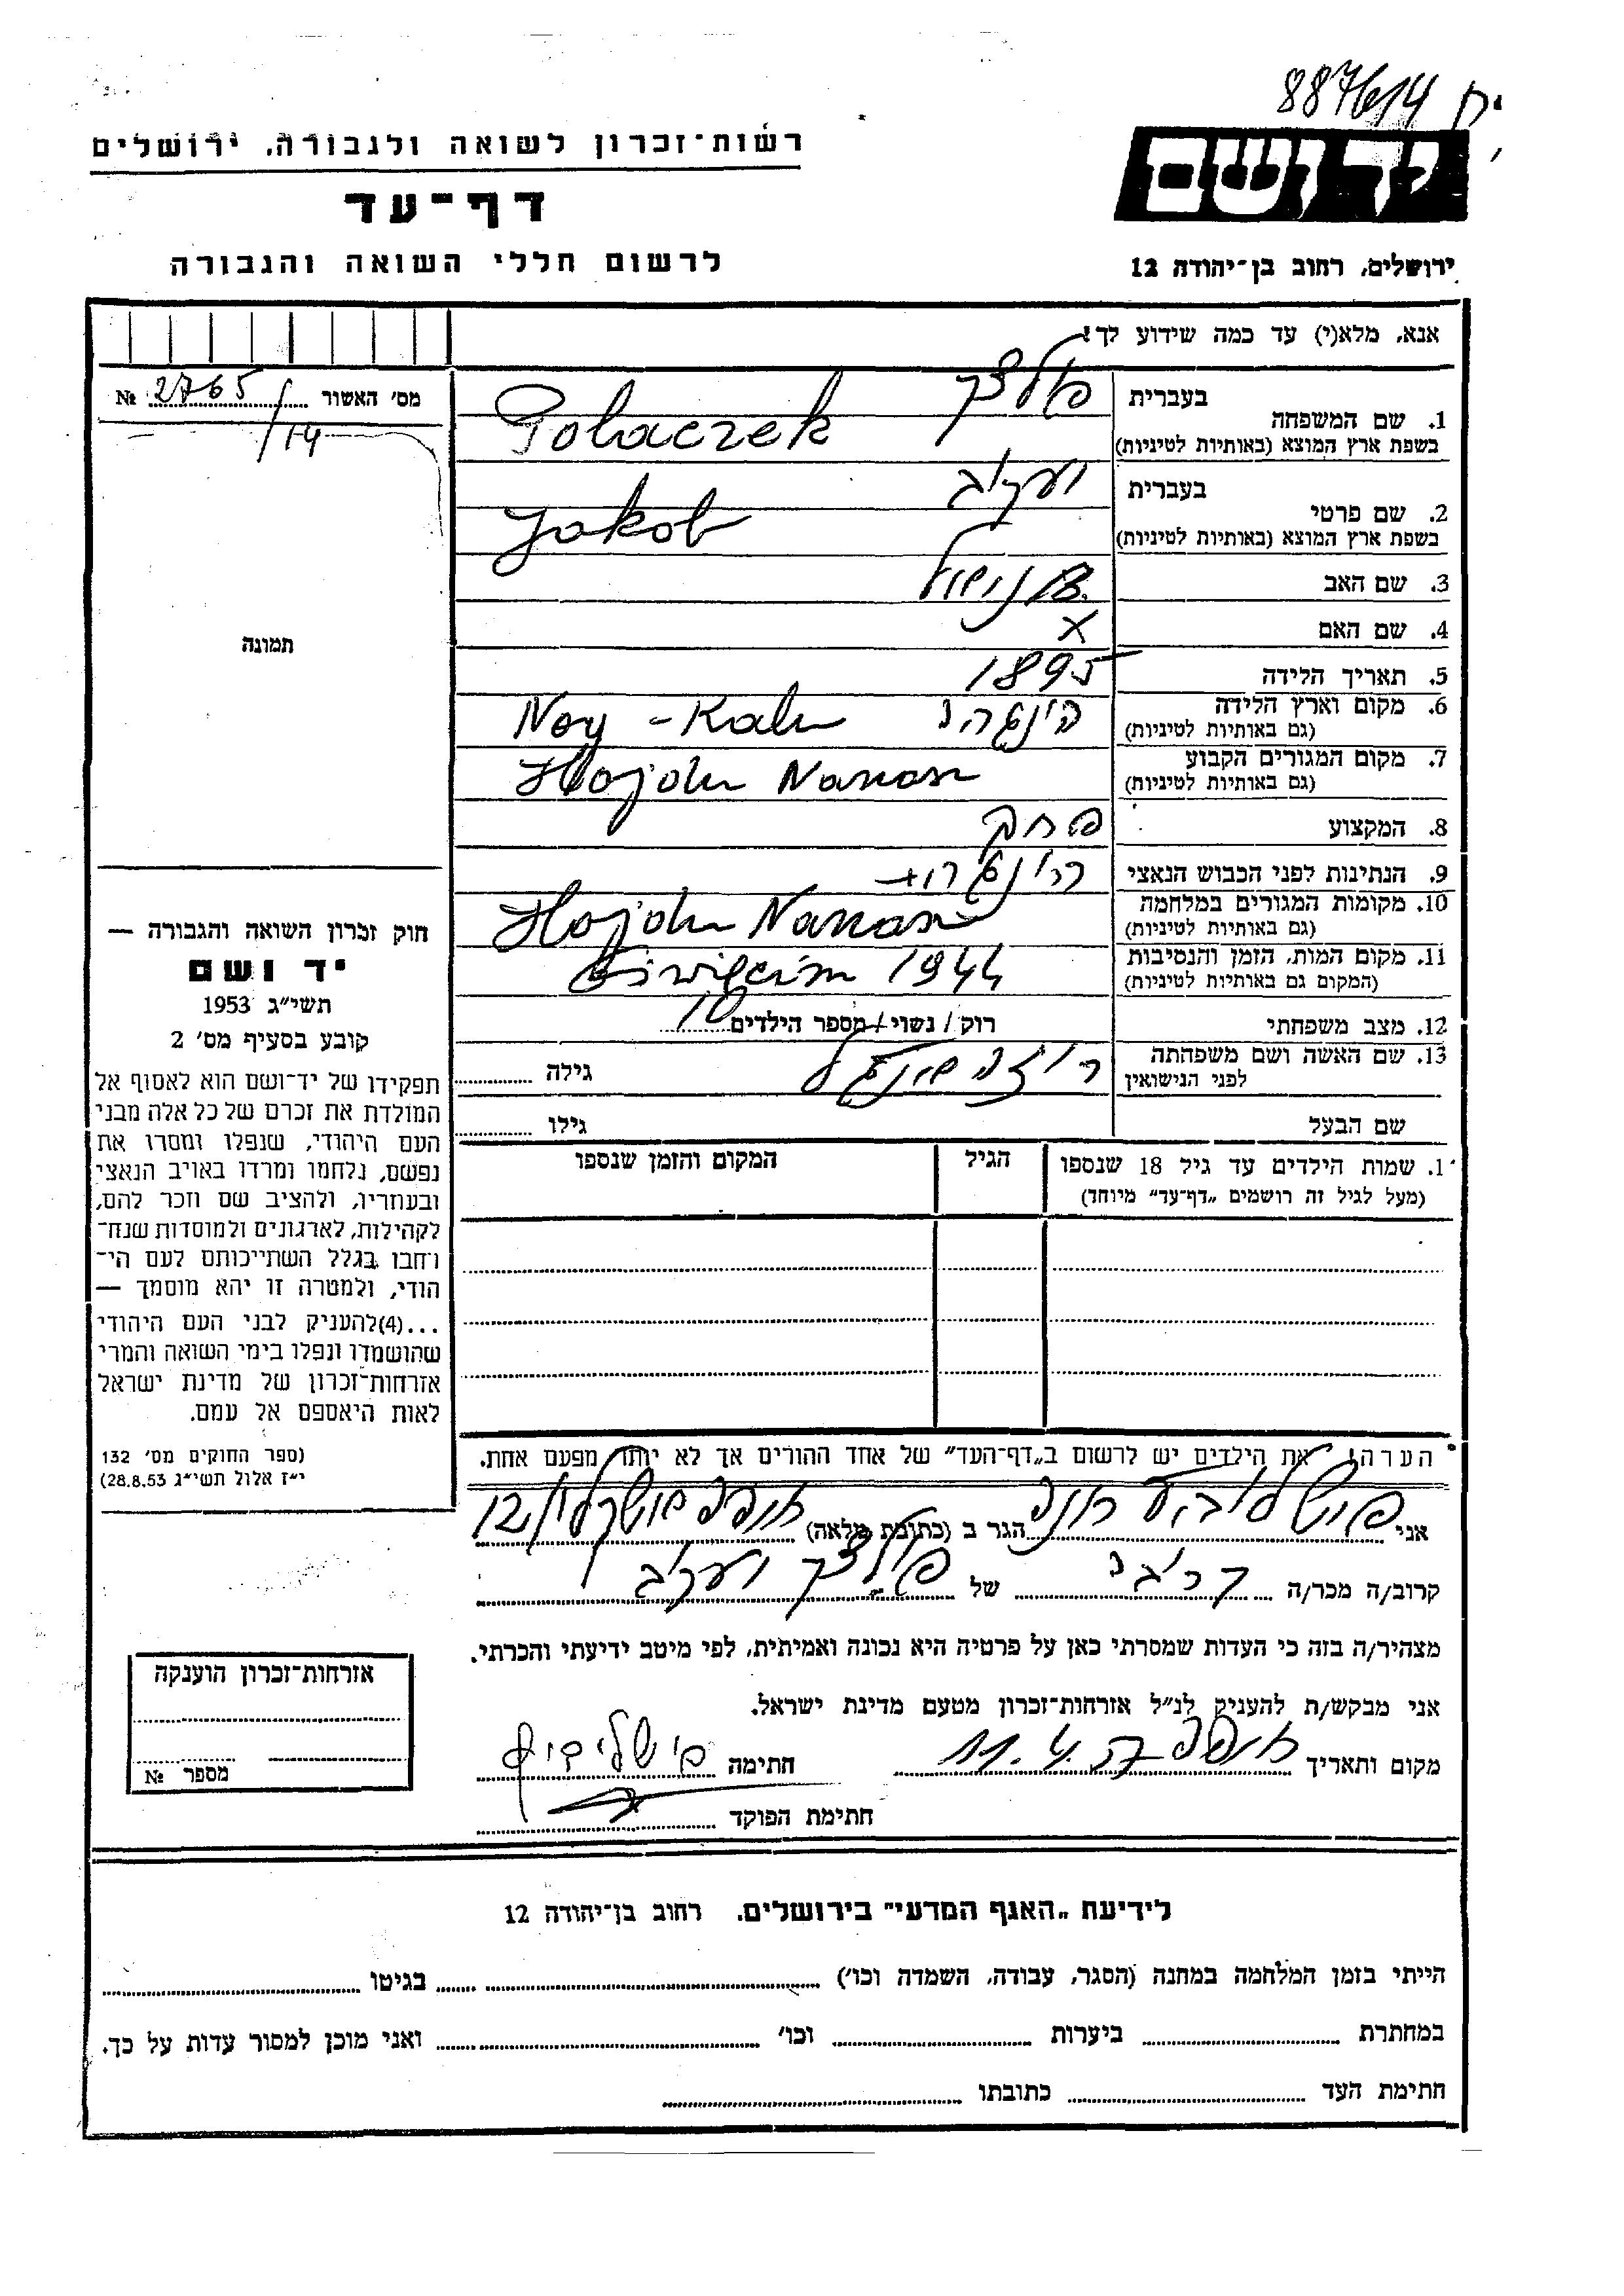 887614 יח
רשות־זכרון לשואה ולגבורה, ירושלים
יד ושם
דף־עד
לרשום חללי השואה והגבורה
ירושלים, רחוב בן־יהודה 12
אנא, מלא(י) עד כמה שידוע לך!
מס' האשור 2765/14 №
תמונה
1. שם המשפחה
בעברית פולצק
בשפת ארץ המוצא (באותיות לטיניות) Polaczek
2. שם פרטי
בעברית יעקב
בשפת ארץ המוצא (באותיות לטיניות) Jakob
3. שם האב
4. שם האם X
5. תאריך הלידה 1895
6. מקום וארץ הלידה
(גם באותיות לטיניות) Noy - Kalu
7. מקום המגורים הקבוע
(גם באותיות לטיניות) Hojdu Nanas
8. המקצוע
9. הנתינות לפני הכבוש הנאצי
10. מקומות המגורים במלחמה
(גם באותיות לטיניות) Hojdu Nanas
11. מקום המות, הזמן והנסיבות
(המקום גם באותיות לטיניות) 1944
12. מצב משפחתי רוק / נשוי / מספר הילדים 10
13. שם האשה ושם משפחתה
לפני הנישואין גילה
שם הבעל גילו
1. שמות הילדים עד גיל 18 שנספו הגיל המקום והזמן שנספו
(מעל לגיל זה רושמים „דף־עד" מיוחד)
הערה: את הילדים יש לרשום ב„דף־העד" של אחד ההורים אך לא יותר מפעם אחת.
חוק זכרון השואה והגבורה —
יד ושם
תשי"ג 1953
קובע בסעיף מס' 2
תפקידו של יד־ושם הוא לאסוף אל
המולדת את זכרם של כל אלה מבני
העם היהודי, שנפלו ומסרו את
נפשם, נלחמו ומרדו באויב הנאצי
ובעוזריו, ולהציב שם וזכר להם,
לקהילות, לארגונים ולמוסדות שנח־
רחבו בגלל השתייכותם לעם הי־
הודי, ולמטרה זו יהא מוסמך —
...(4)להעניק לבני העם היהודי
שהושמדו ונפלו בימי השואה והמרי
אזרחות־זכרון של מדינת ישראל
לאות היאספם אל עמם.
(ספר החוקים מס' 132
י"ז אלול תשי"ג 28.8.53)
אני הגר ב (כתובת מלאה)
קרוב/ה מכר/ה של פולצק יעקב
מצהיר/ה בזה כי העדות שמסרתי כאן על פרטיה היא נכונה ואמיתית, לפי מיטב ידיעתי והכרתי.
אני מבקש/ת להעניק לנ"ל אזרחות־זכרון מטעם מדינת ישראל.
מקום ותאריך חתימה
חתימת הפוקד
אזרחות־זכרון הוענקה
מספר №
לידיעת „האגף המדעי" בירושלים. רחוב בן־יהודה 12
הייתי בזמן המלחמה במחנה (הסגר, עבודה, השמדה וכו') בגיטו
במחתרת ביערות וכו' ואני מוכן למסור עדות על כך.
חתימת העד כתובתו